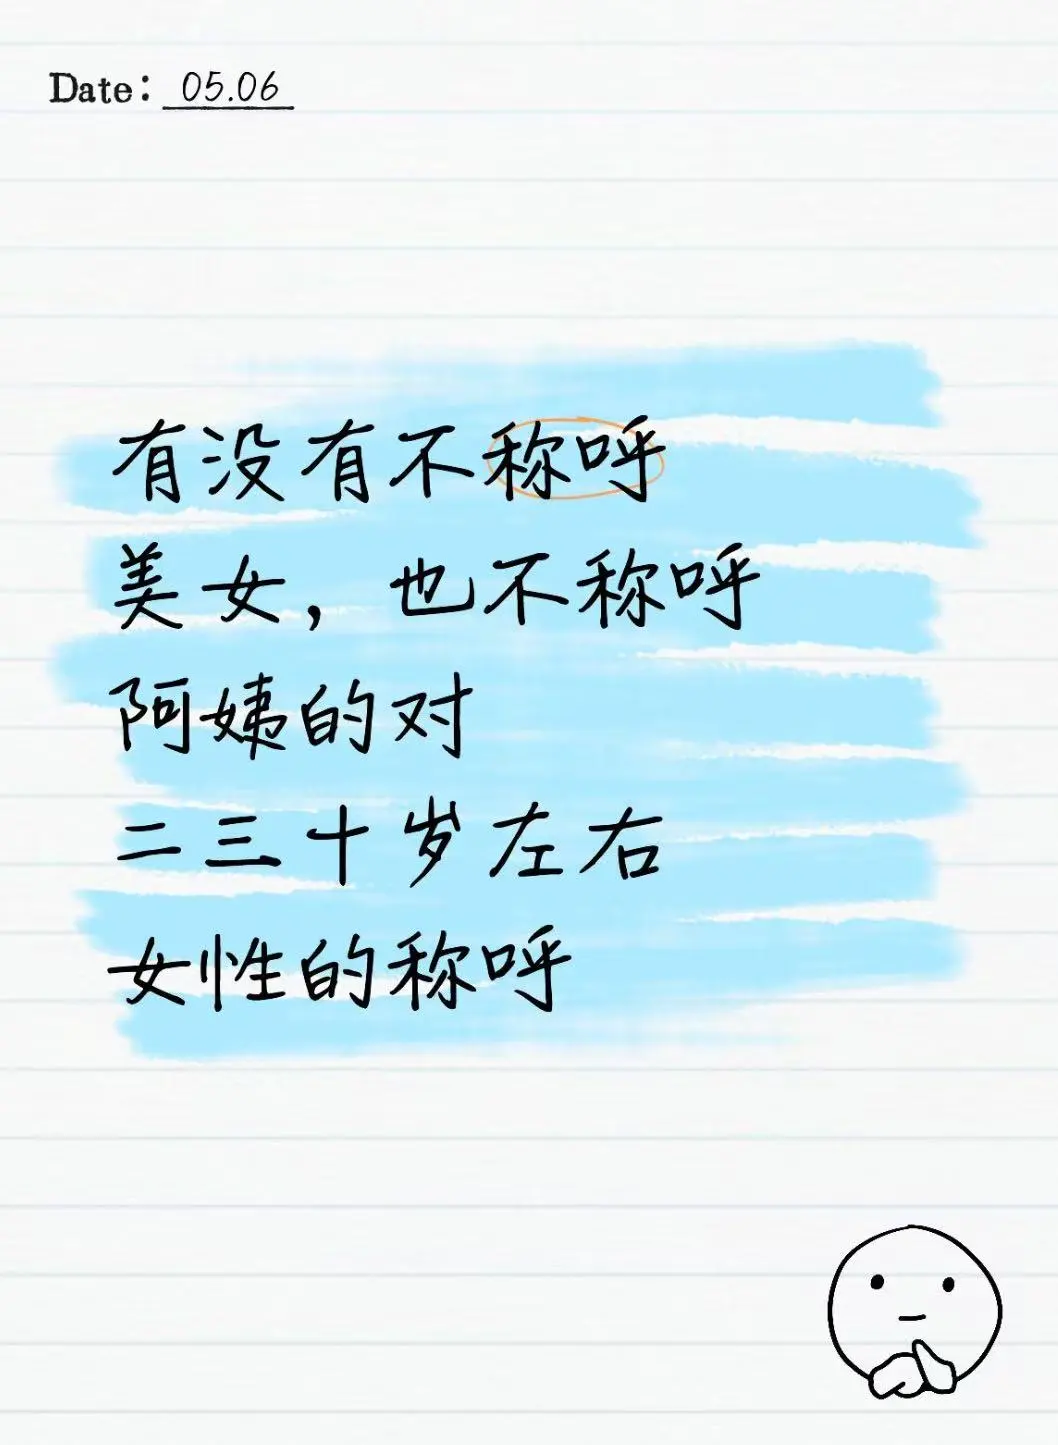 Date: 05.06
有没有不称呼
美女，也不称呼
阿姨的对
二三十岁左右
女性的称呼